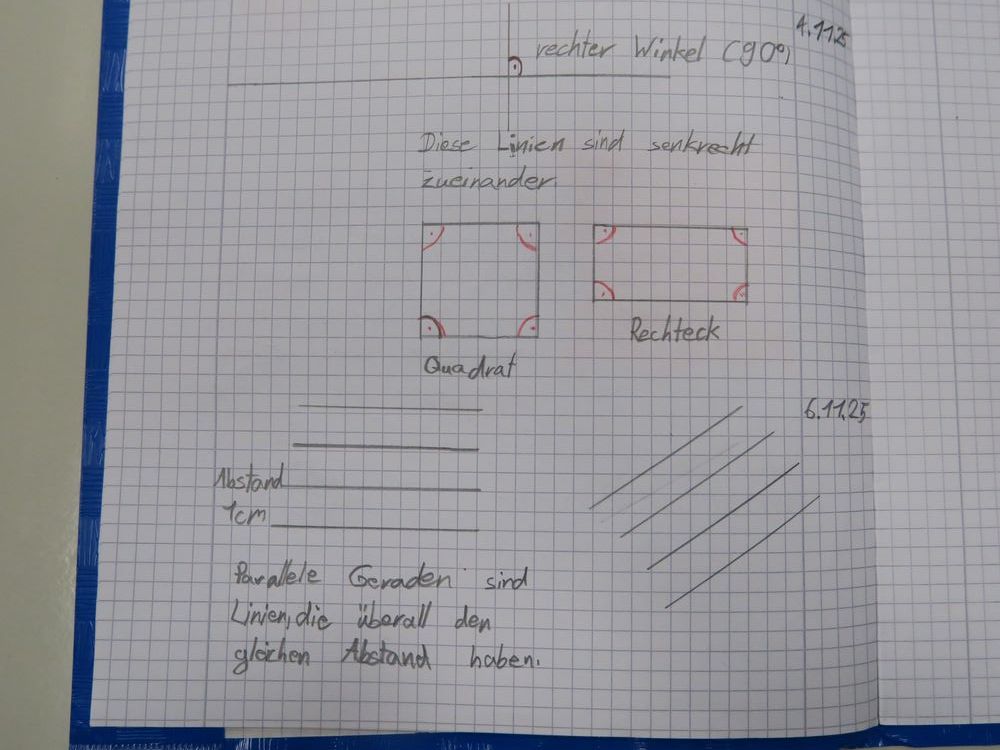 4.11.25
rechter Winkel (90°)
Diese Linien sind senkrecht
zueinander.
Quadrat
Rechteck
6.11.25
Abstand
1cm
Parallele Geraden sind
Linien, die überall den
gleichen Abstand haben.